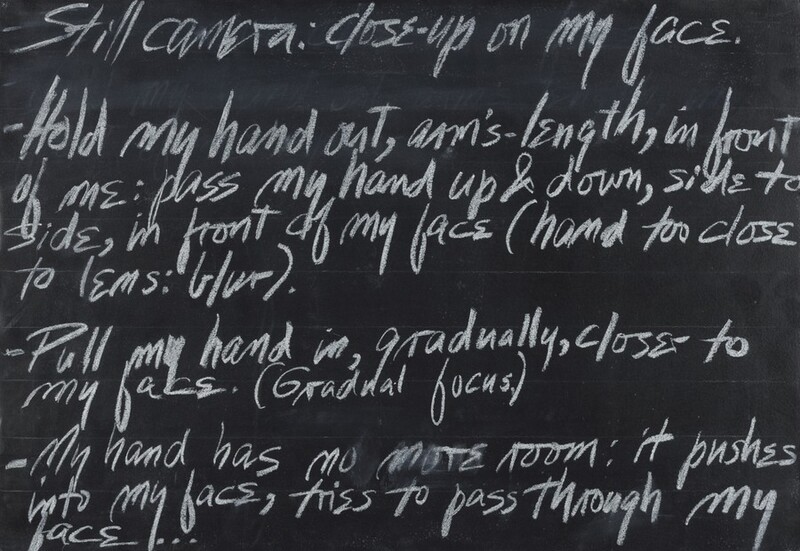 - Still camera: close-up on my face.
- Hold my hand out, arm's-length, in front
of me: pass my hand up & down, side to
side, in front of my face (hand too close
to lens: blur).
- Pull my hand in, gradually, close to
my face. (Gradual focus.)
- My hand has no more room: it pushes
into my face, tries to pass through my
face ...